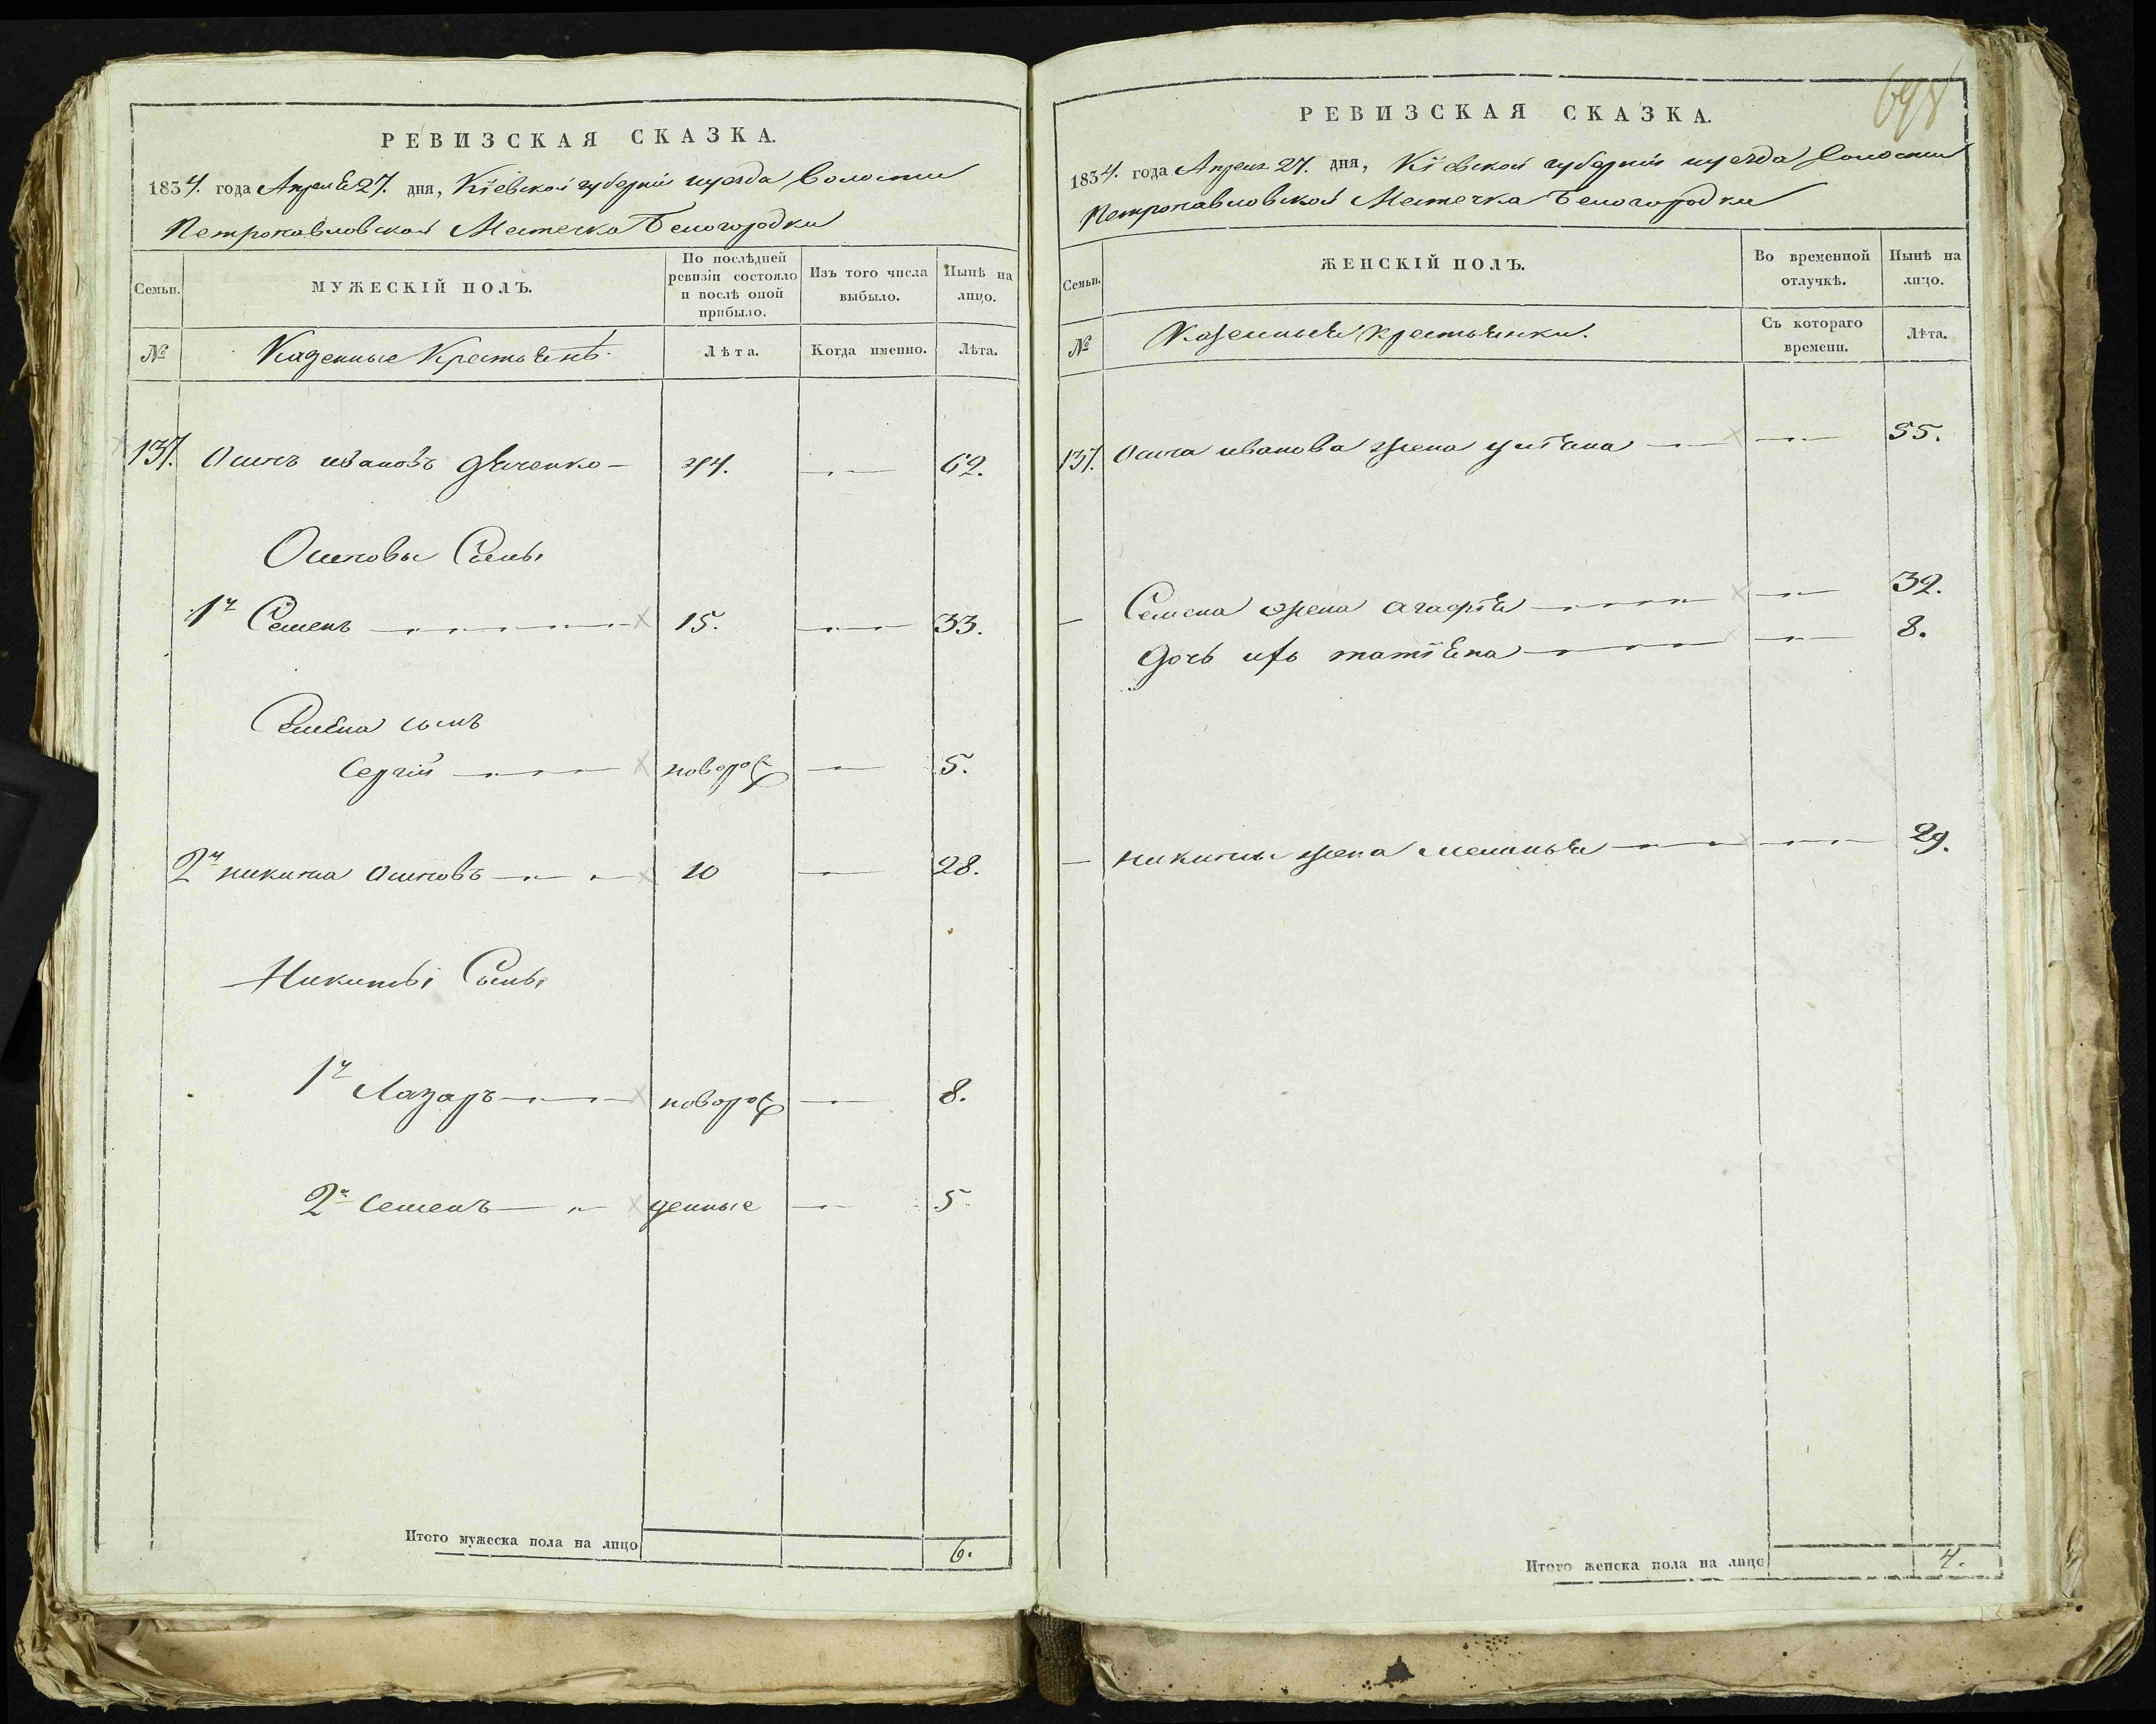 РЕВИЗСКАЯ СКАЗКА.
1834. года Апреля 27. дня, Кіевской губерніи и уезда Волости
Петропавловской Местечка Белогородки
Семьи.
МУЖЕСКІЙ ПОЛЪ.
По послѣдней ревизіи состояло и послѣ оной прибыло.
Изъ того числа выбыло.
Нынѣ на лицо.
№
Казенные Крестьянѣ.
Лѣта.
Когда именно.
Лѣта.
137. Осипъ ивановъ дяченко 44. 62.
Осиповы Сыны
1й Семенъ 15. 33.
Семена сынъ
Сергій новорож 5.
2й никита осиповъ 10 28.
Никиты Сыны
1й Лазаръ новорож 8.
2й семенъ денные 5
Итого мужеска пола на лицо 6.
698
РЕВИЗСКАЯ СКАЗКА.
1834. года Апреля 27. дня, Кіевской губерніи и уезда Волости
Петропавловской Местечка Белогородки
Семьи.
ЖЕНСКІЙ ПОЛЪ.
Во временной отлучкѣ.
Нынѣ на лицо.
№
Казенныя крестьянки.
Съ котораго времени.
Лѣта.
137. Осипа иванова жена уліяна 55.
Семена жена агафія 32.
дочь ихъ татіяна 8.
никиты жена меланья 29.
Итого женска пола на лицо 4.